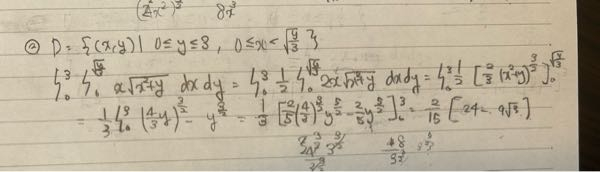 8x³
② D = {(x,y) | 0≤y≤3, 0≤x<√(y/3)}
∫₀³ ∫₀^√(y/3) x√(x²+y) dxdy = ∫₀³ 1/2 ∫₀^√(y/3) 2x√(x²+y) dxdy = ∫₀³ 1/2 [2/3 (x²+y)^(3/2)]₀^√(y/3)
= 1/3 ∫₀³ (4/3 y)^(3/2) - y^(3/2) = 1/3 [2/5 (4/3)^(3/2) y^(5/2) - 2/5 y^(5/2)]₀³ = 2/15 [24 - 9√3]